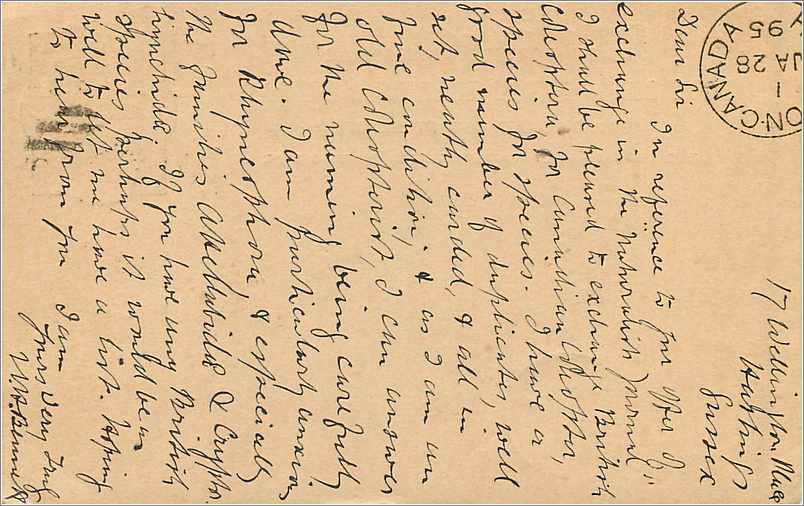 17 Wellington Place
Hastings
Sussex
Dear Sir
In reference to your offer of
exchange in the Naturalists Journal"
I shall be pleased to exchange British
Coleoptera for Canadian
species for species. I have a
good number of duplicates, well
set, neatly carded, & all in
fine condition, & as I am an
old Coleopterist, I can answer
for the naming being carefully
done. I am particularly anxious
for Rhyncophora, & especially
the families Attelabidae & Crypto
rynchidae. If you have any British
species perhaps it would be as
well to let me have a list. Hoping
to hear from you I am
Yours very truly
W. H. Bennett
ON. CANADA
1
JA 28
95